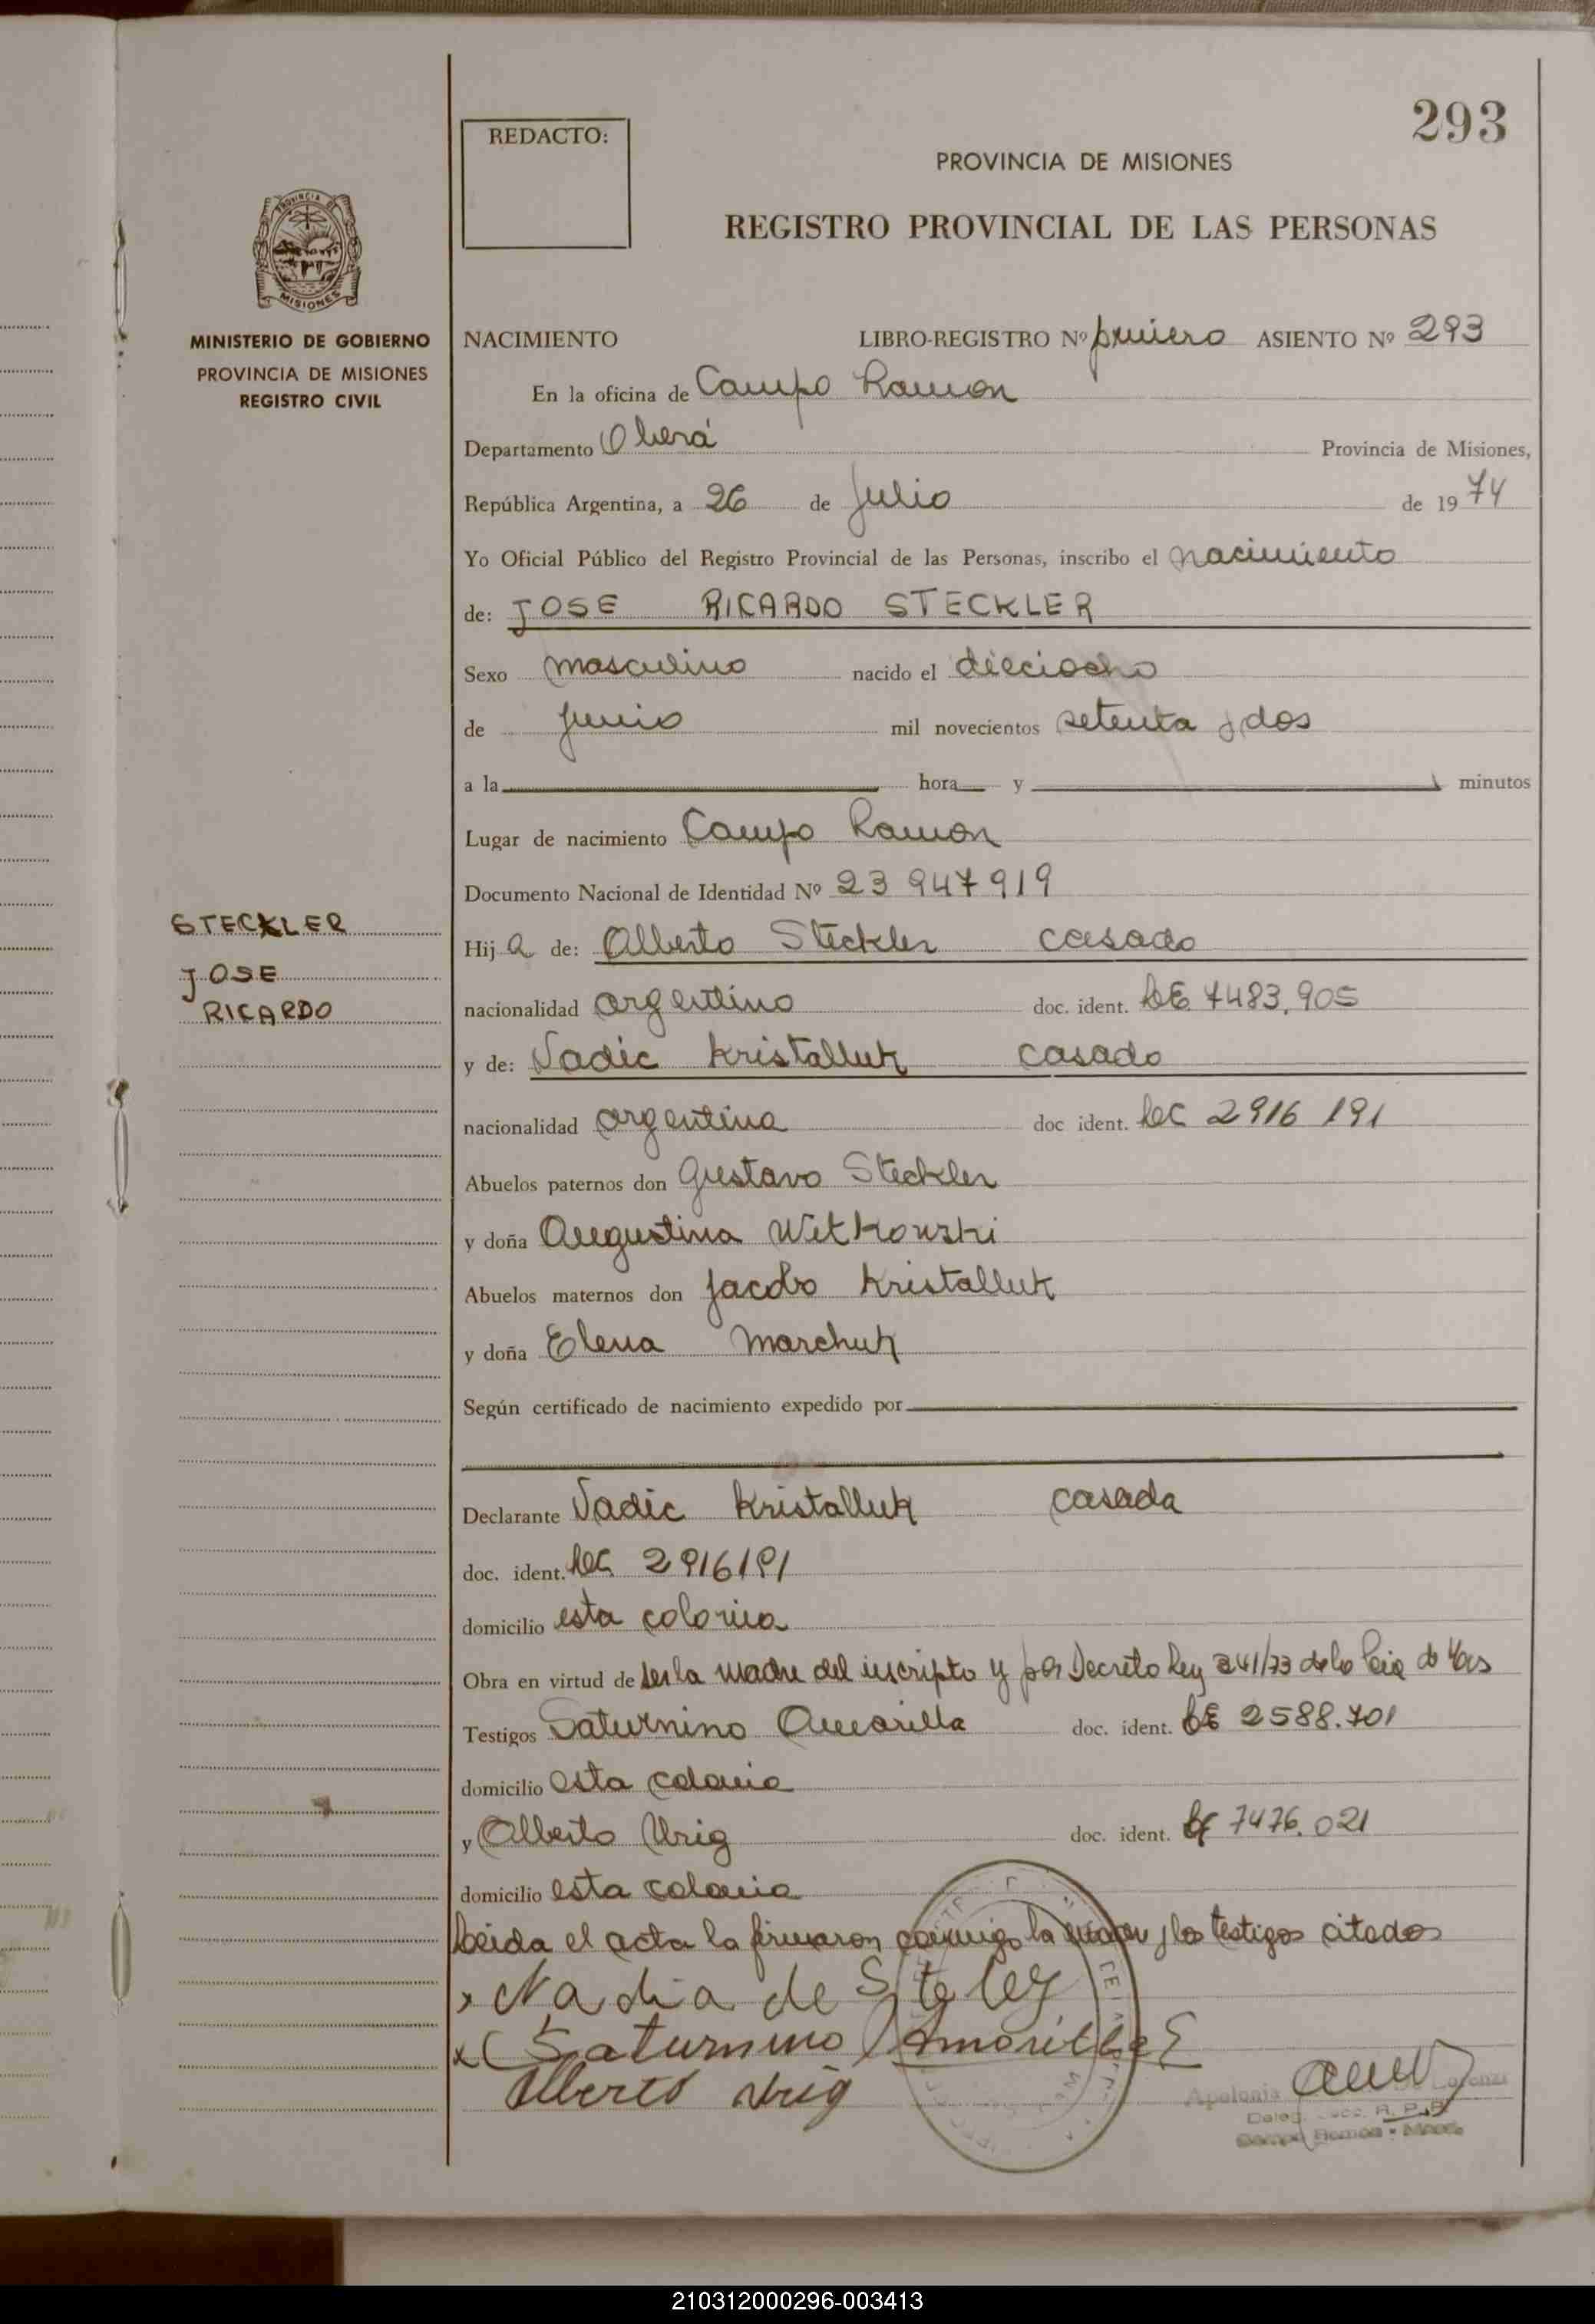 293
REDACTO:
PROVINCIA DE MISIONES
REGISTRO PROVINCIAL DE LAS PERSONAS
MISIONES
MINISTERIO DE GOBIERNO
PROVINCIA DE MISIONES
REGISTRO CIVIL
NACIMIENTO LIBRO-REGISTRO Nº primero ASIENTO Nº 293
En la oficina de Campo Ramon
Departamento Oberá Provincia de Misiones,
República Argentina, a 26 de Julio de 1974
Yo Oficial Público del Registro Provincial de las Personas, inscribo el nacimiento
de: JOSE RICARDO STECKLER
Sexo masculino nacido el dieciocho
de junio mil novecientos setenta y dos
a la hora y minutos
Lugar de nacimiento Campo Ramon
Documento Nacional de Identidad Nº 23 947919
STECKLER
JOSE
RICARDO
Hij a de: Alberto Steckler casado
nacionalidad argentino doc. ident. LE 7483.905
y de: Nadic Kristalluk casado
nacionalidad argentina doc ident. LC 2916 191
Abuelos paternos don Gustavo Steckler
y doña Augustina Witkowski
Abuelos maternos don Jacobo Kristalluk
y doña Elena Marchuk
Según certificado de nacimiento expedido por
Declarante Nadic Kristalluk casada
doc. ident. LC 2916191
domicilio esta colonia
Obra en virtud de ser la madre del inscripto y por Decreto Ley 241/73 de la Pcia de Mnes
Testigos Saturnino Amarilla doc. ident. LE 2588.701
domicilio esta colonia
y Alberto Urig doc. ident. LE 7476.021
domicilio esta colonia
Leida el acta la firmaron conmigo la y los testigos citados
x Nadia de
x Saturnino Amarilla
Alberto Urig
Apolonia Lorenzi
Campo Ramon - Mnes.
210312000296-003413